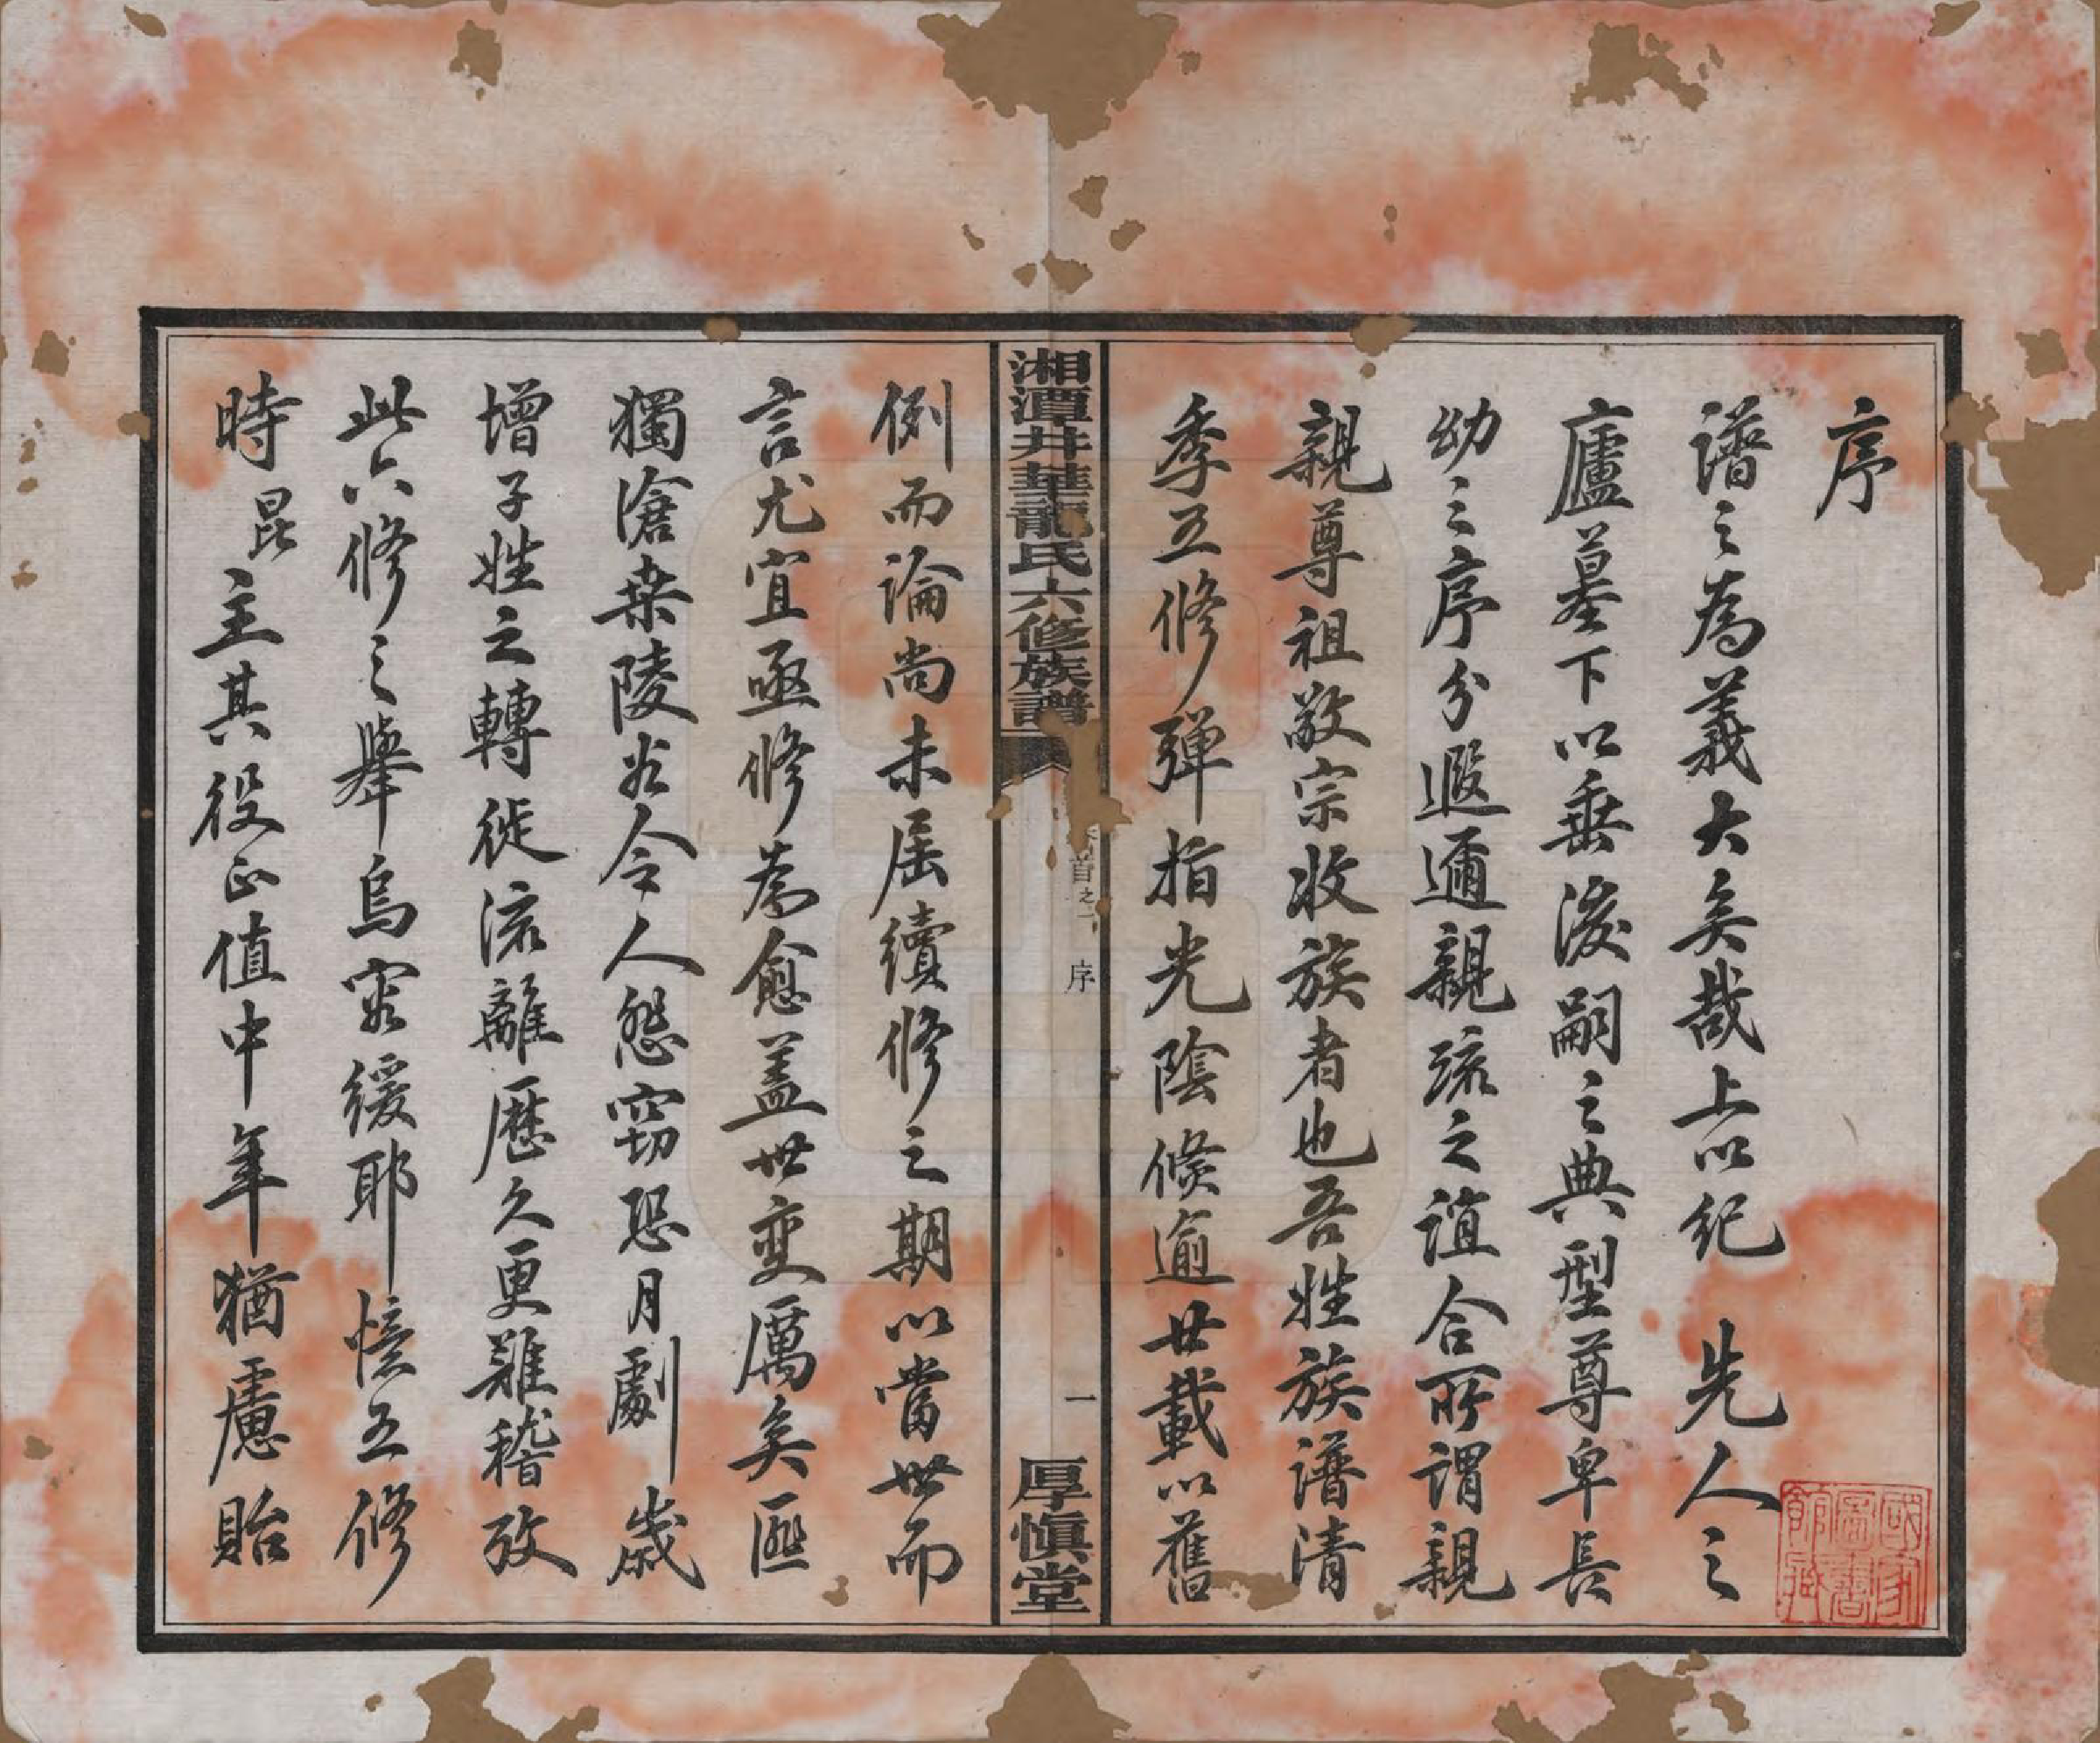 序
譜之為義大矣哉上以紀 先人之
廬墓下以垂後嗣之典型尊卑長
幼之序分遐邇親疏之誼合所謂親
親尊祖敬宗收族者也吾姓族譜清
季五修彈指光陰倏逾廿載以舊
湘潭井華龍氏六修族譜
首之
序
一
厚慎堂
例而論尚未屆續修之期以當世而
言尤宜亟修為愈蓋世變厲矣匪
獨滄桒陵谷令人愁竊恐月劇歲
增子姓之轉徙流離歷久更難稽攷
此六修之舉烏容緩耶憶五修
時昆主其役正值中年猶慮貽
國家圖書館藏